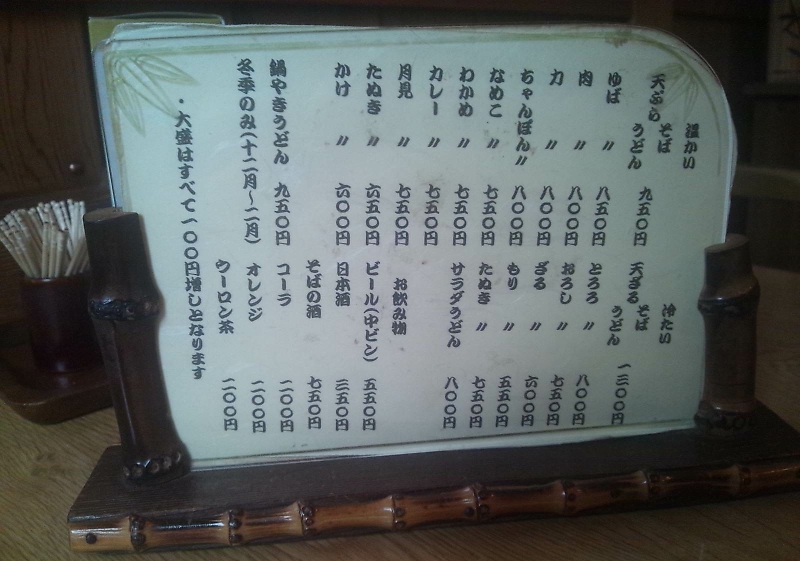 温かい
天ぷら そば うどん 九五〇円
ゆば 〃 八五〇円
肉 〃 八〇〇円
力 〃 八〇〇円
ちゃんぽん〃 八〇〇円
なめこ 〃 七五〇円
わかめ 〃 七五〇円
カレー 〃 七五〇円
月見 〃 七五〇円
たぬき 〃 六五〇円
かけ 〃 六〇〇円
鍋やきうどん 九五〇円
冬季のみ(十二月～二月)
冷たい
天ざる そば うどん 一三〇〇円
とろろ 〃 八〇〇円
おろし 〃 七五〇円
ざる 〃 六〇〇円
もり 〃 五五〇円
たぬき 〃 七五〇円
サラダうどん 八〇〇円
お飲み物
ビール(中ビン) 五五〇円
日本酒 三五〇円
そばの酒 七五〇円
コーラ 二〇〇円
オレンジ 二〇〇円
ウーロン茶 二〇〇円
・大盛はすべて一〇〇円増しとなります